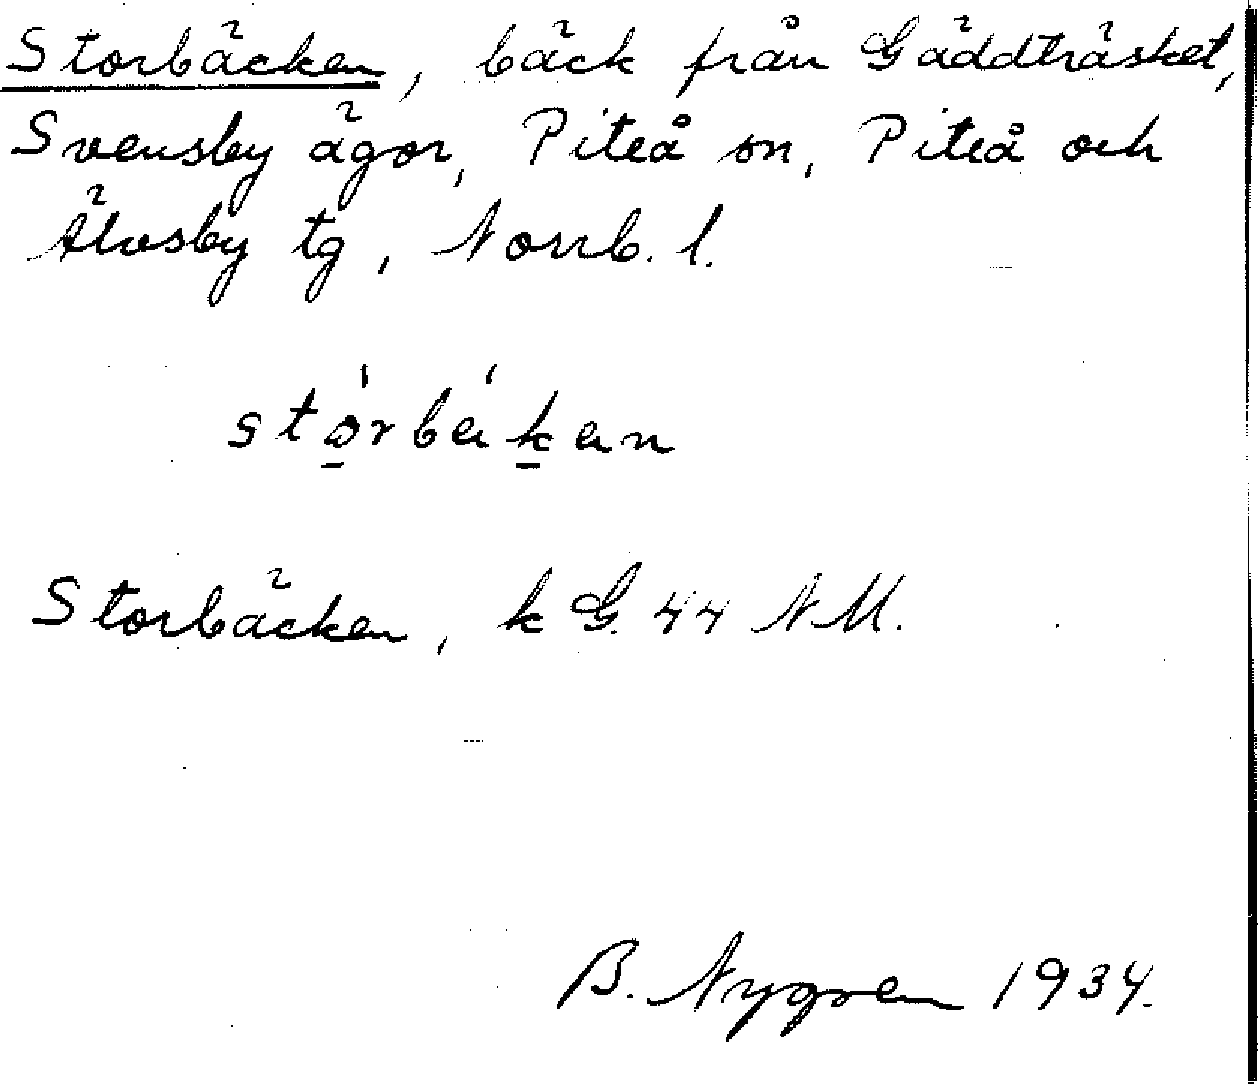 Storbäcken, bäck från Gäddträsket,
Svensby ägor, Piteå sn, Piteå och
Älvsby tg, Norrb. l.
Storbäcken, k G. 44 NM.
B. Nygren 1934.